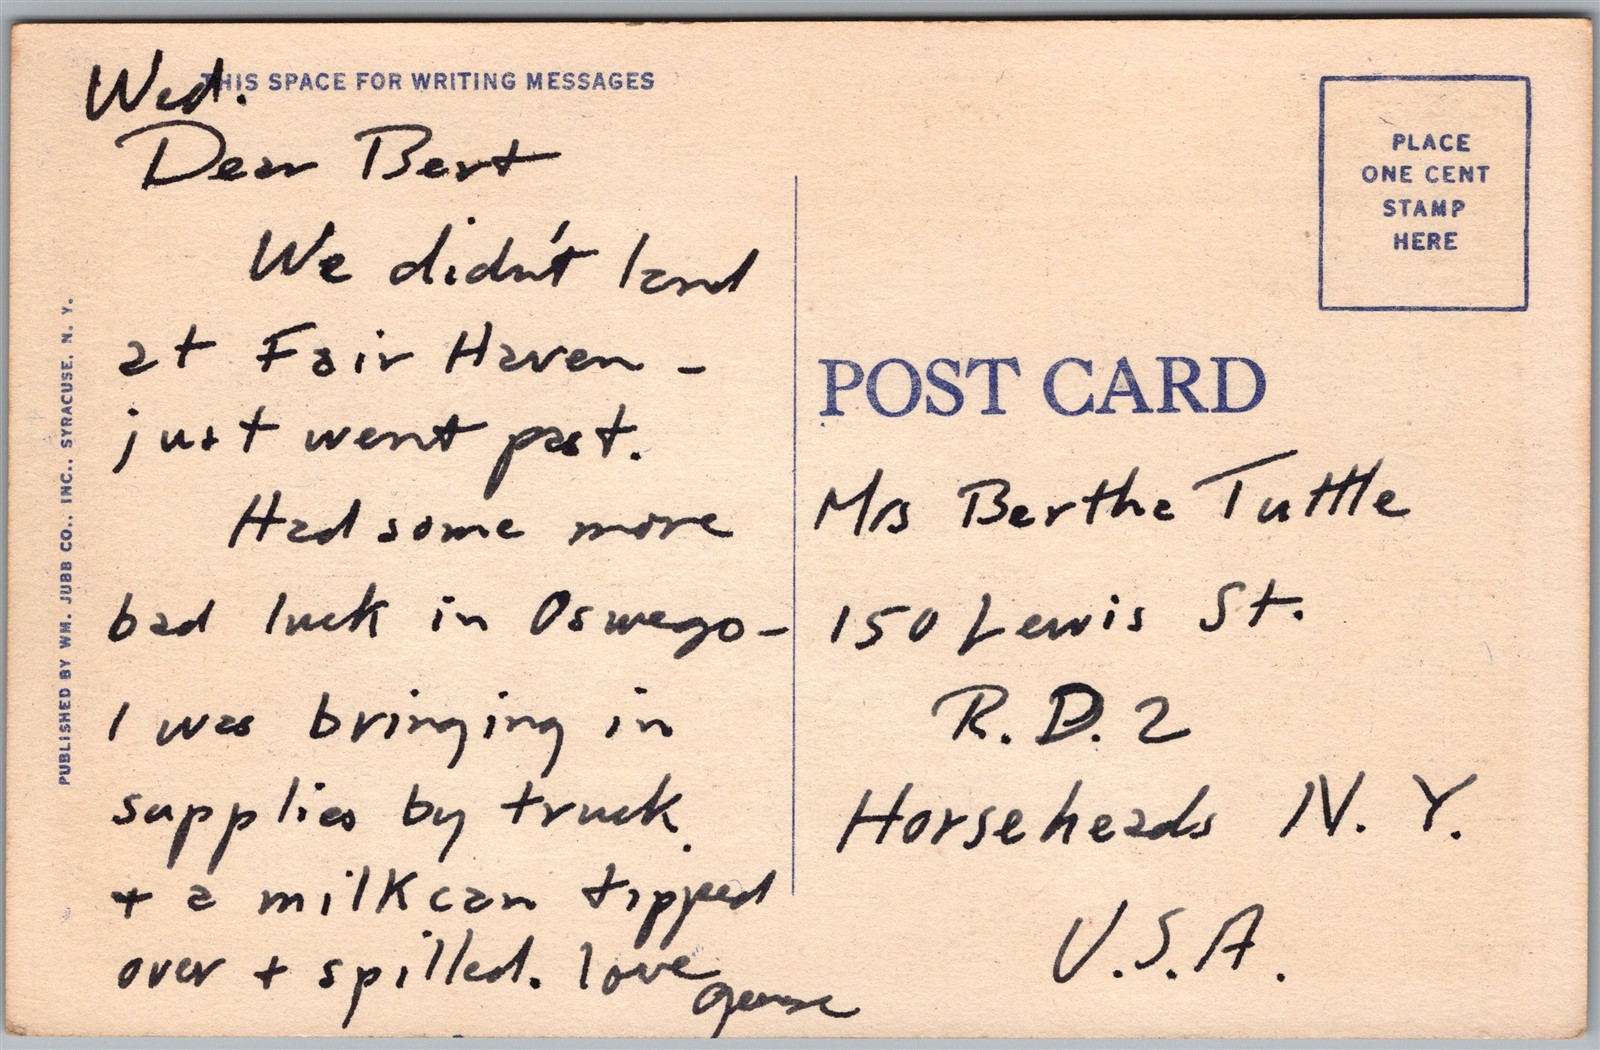 Wed.
THIS SPACE FOR WRITING MESSAGES
Dear Bert
We didn't land
at Fair Haven -
just went past.
Had some more
bad luck in Oswego -
I was bringing in
supplies by truck.
+ a milk can tipped
over + spilled. love
PUBLISHED BY WM. JUBB CO., INC., SYRACUSE, N. Y.
PLACE
ONE CENT
STAMP
HERE
POST CARD
Mrs Bertha Tuttle
150 Lewis St.
R.D. 2
Horseheads N. Y.
U.S.A.